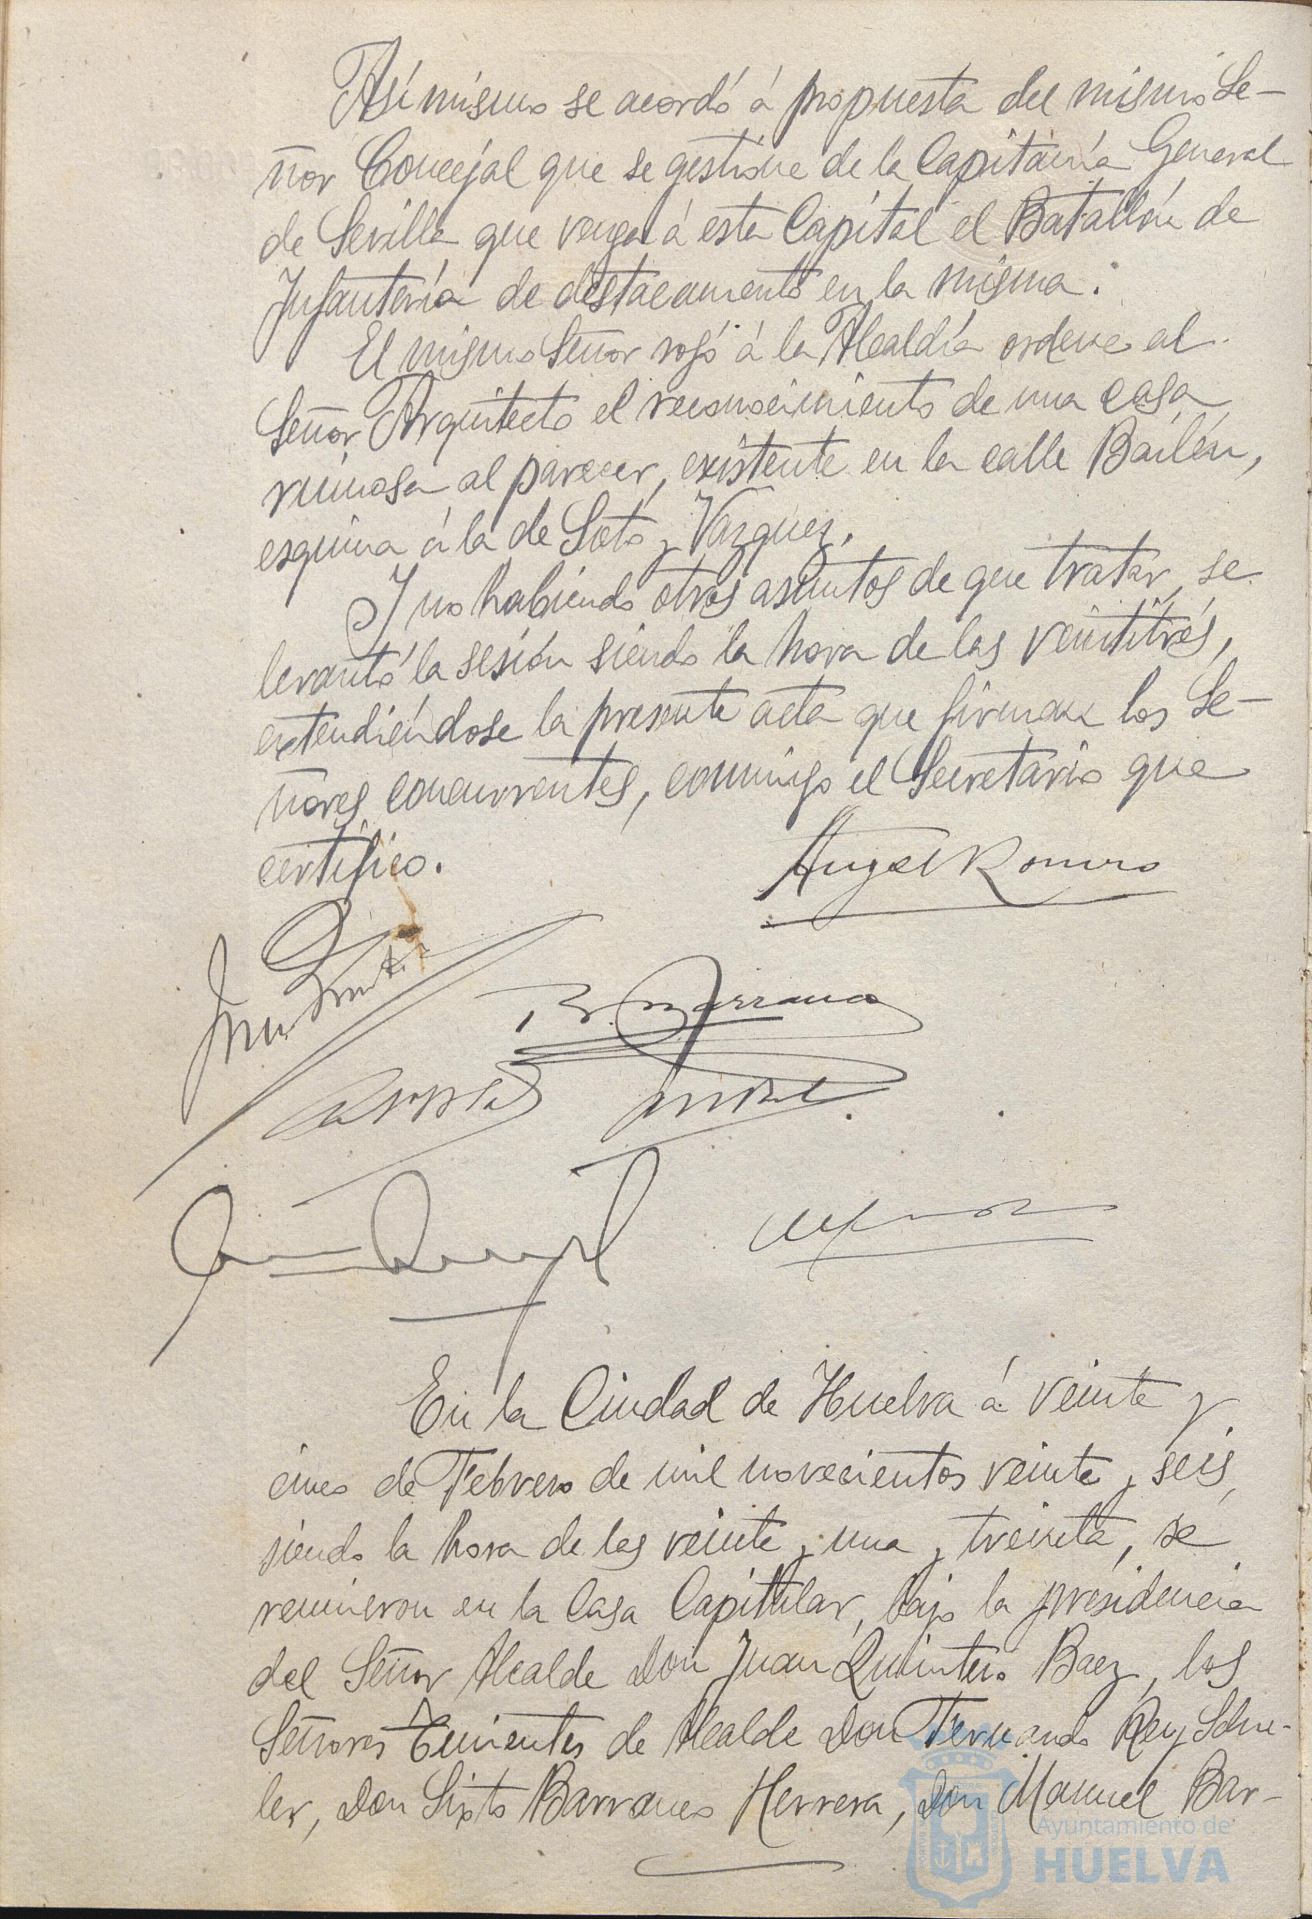 Así mismo se acordó á propuesta del mismo Se-
ñor Concejal que se gestione de la Capitanía General
de Sevilla que venga á esta Capital el Batallón de
Infantería de destacamento en la misma.
El mismo Señor rogó á la Alcaldía ordene al
Señor Arquitecto el reconocimiento de una casa
ruinosa al parecer, existente en la calle Bailén,
esquina á la de Soto y Vazquez.
Y no habiendo otros asuntos de que tratar, se
levantó la sesión siendo la hora de las veintitrés,
extendiéndose la presente acta que firman los Se-
ñores concurrentes, conmigo el Secretario que
certifico.
Angel Romero
B. Barranco
En la Ciudad de Huelva á veinte y
cinco de Febrero de mil novecientos veinte y seis,
siendo la hora de las veinte y una y treinta, se
reunieron en la Casa Capitular, bajo la presidencia
del Señor Alcalde Don Juan Quintero Baez, los
Señores Tenientes de Alcalde Don Fernando Rey Schu-
ler, Don Sixto Barranco Herrera, Don Manuel Bar-
Ayuntamiento de
HUELVA